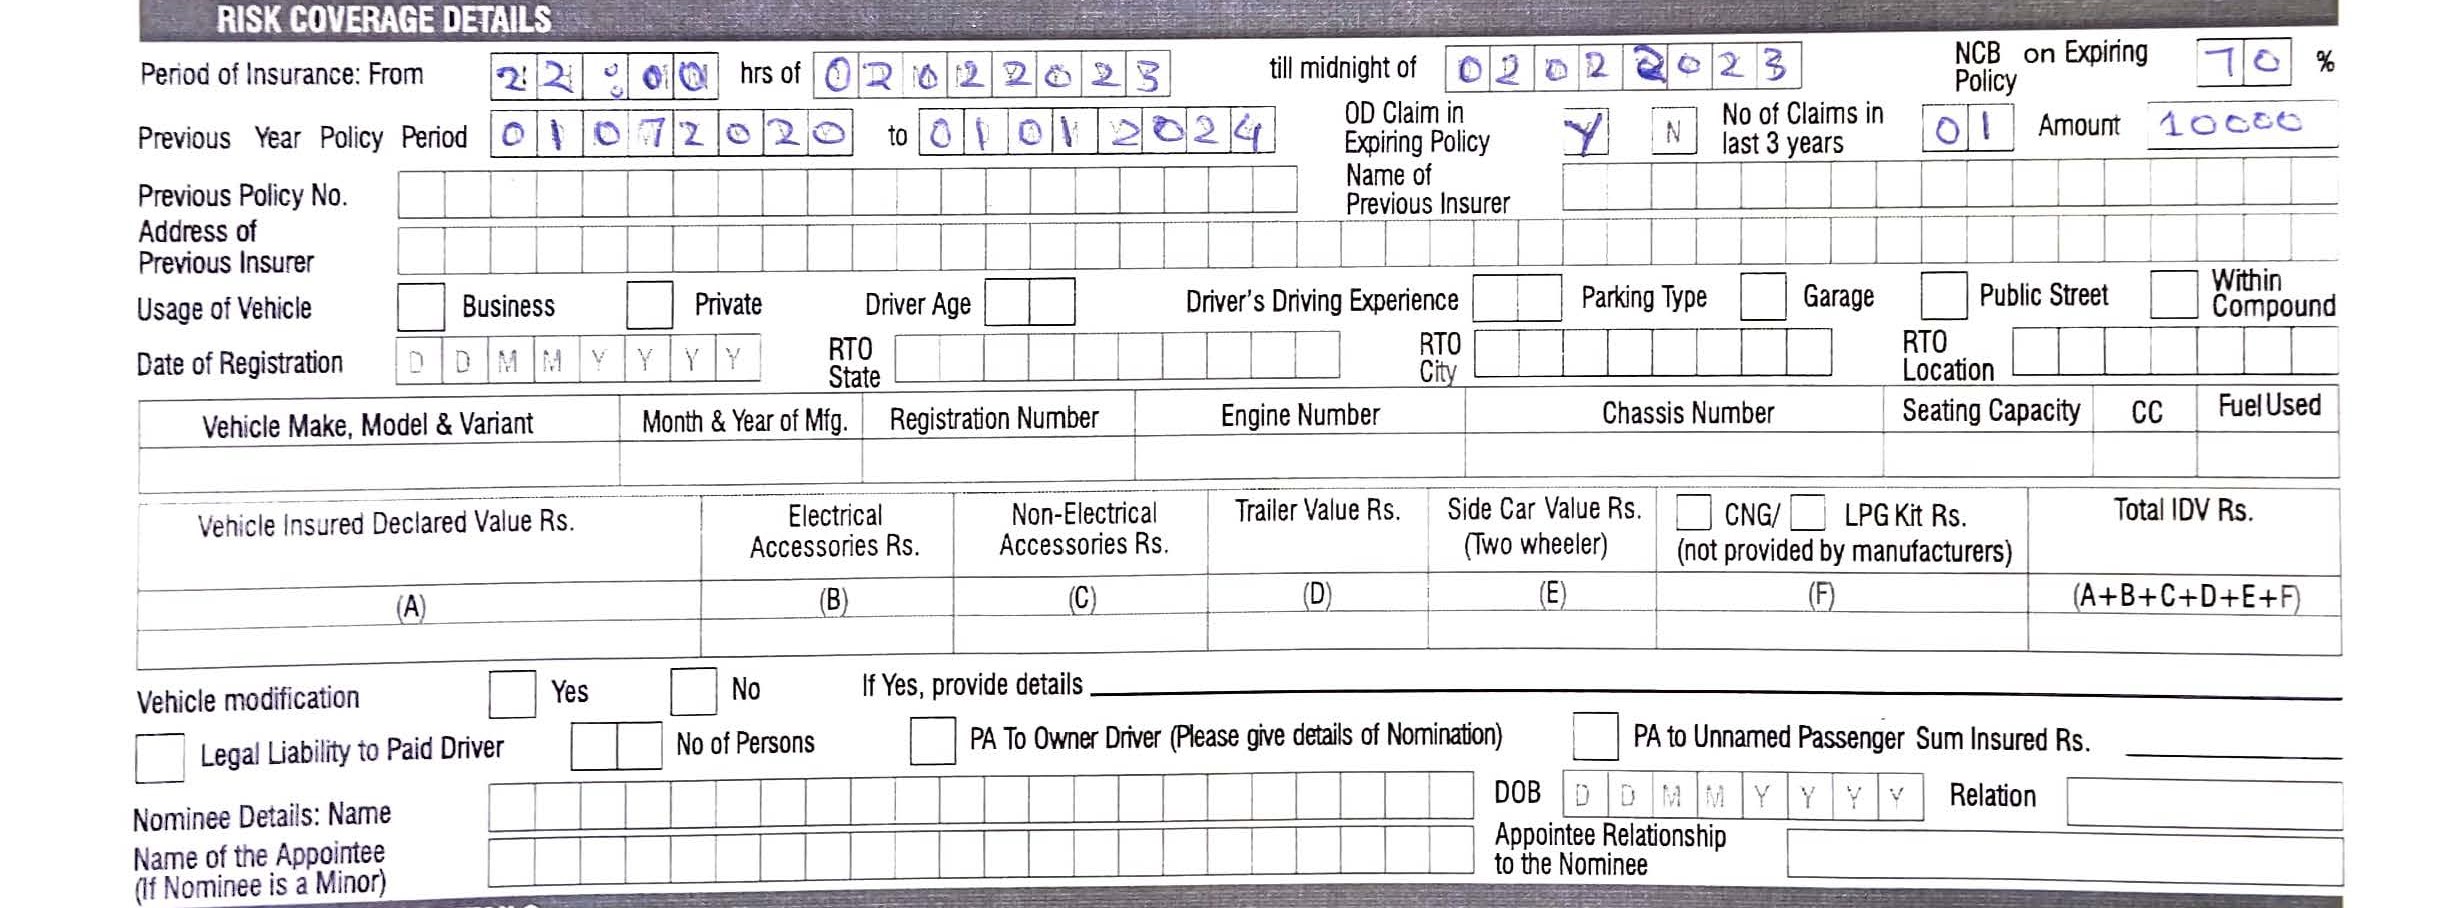 RISK COVERAGE DETAILS
Period of Insurance: From 22:00 hrs of 02022023 till midnight of 02022023 NCB on Expiring Policy 70 %
Previous Year Policy Period 01072020 to 01012024 OD Claim in Expiring Policy Y N No of Claims in last 3 years 01 Amount 10000
Previous Policy No. Name of Previous Insurer
Address of Previous Insurer
Usage of Vehicle Business Private Driver Age Driver's Driving Experience Parking Type Garage Public Street Within Compound
Date of Registration D D M M Y Y Y Y RTO State RTO City RTO Location
Vehicle Make, Model & Variant Month & Year of Mfg. Registration Number Engine Number Chassis Number Seating Capacity CC Fuel Used
Vehicle Insured Declared Value Rs. Electrical Accessories Rs. Non-Electrical Accessories Rs. Trailer Value Rs. Side Car Value Rs. (Two wheeler) CNG/ LPG Kit Rs. (not provided by manufacturers) Total IDV Rs.
(A) (B) (C) (D) (E) (F) (A+B+C+D+E+F)
Vehicle modification Yes No If Yes, provide details
Legal Liability to Paid Driver No of Persons PA To Owner Driver (Please give details of Nomination) PA to Unnamed Passenger Sum Insured Rs.
Nominee Details: Name DOB D D M M Y Y Y Y Relation
Name of the Appointee (If Nominee is a Minor) Appointee Relationship to the Nominee